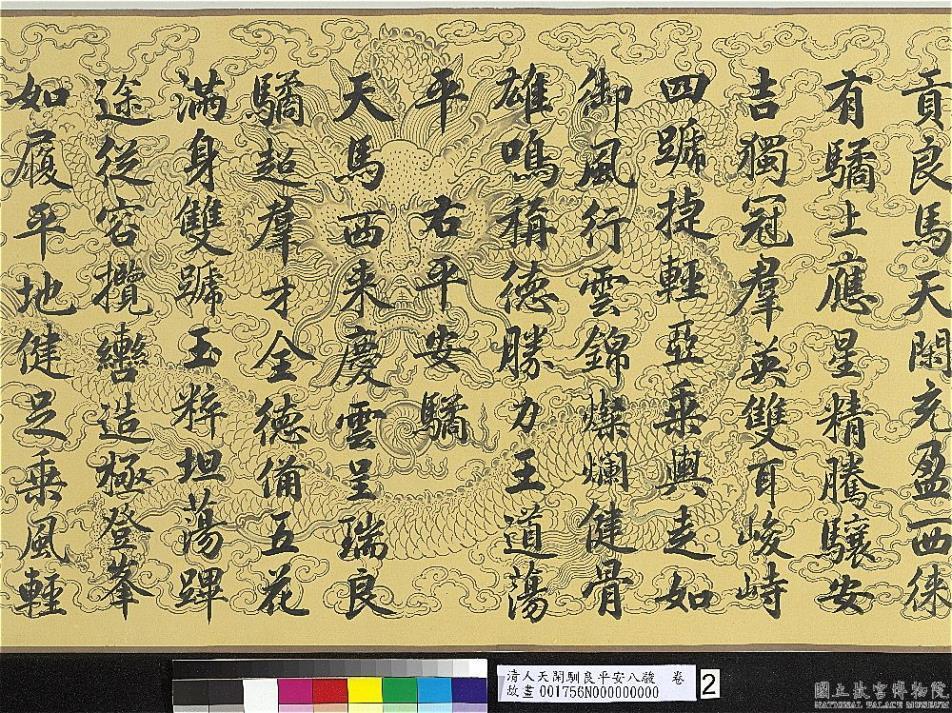 貢良馬天閑充盈西徠
有驕上應星精騰驤安
吉獨冠羣英雙耳峻峙
四蹏捷輕亞乘輿走如
御風行雲錦燦爛健骨
雄鳴稱德勝力王道蕩
平右平安驕
天馬西来慶雲呈瑞良
驕超羣才全德備五花
滿身雙蹏玉粹坦蕩蹕
途從容攬轡造極登峯
如履平地健足乘風輕
清人天閑馴良平安八駿 卷
故畫001756N000000000
2
國立故宮博物院
NATIONAL PALACE MUSEUM